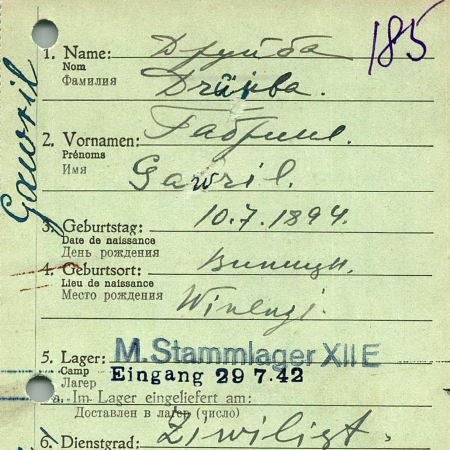 185
1. Name: Друйба
Nom
Фамилия
Drüiba.
2. Vornamen: Габриил.
Prénoms
Имя
Gawril.
Gawril
3. Geburtstag: 10.7.1894.
Date de naissance
День рождения
4. Geburtsort:
Lieu de naissance
Место рождения
Winenzi.
5. Lager: M. Stammlager XII E
Camp
Лагер
Eingang 29 7.42
a. Im Lager eingeliefert am:
Доставлен в лагер (число)
6. Dienstgrad: Ziwilist.